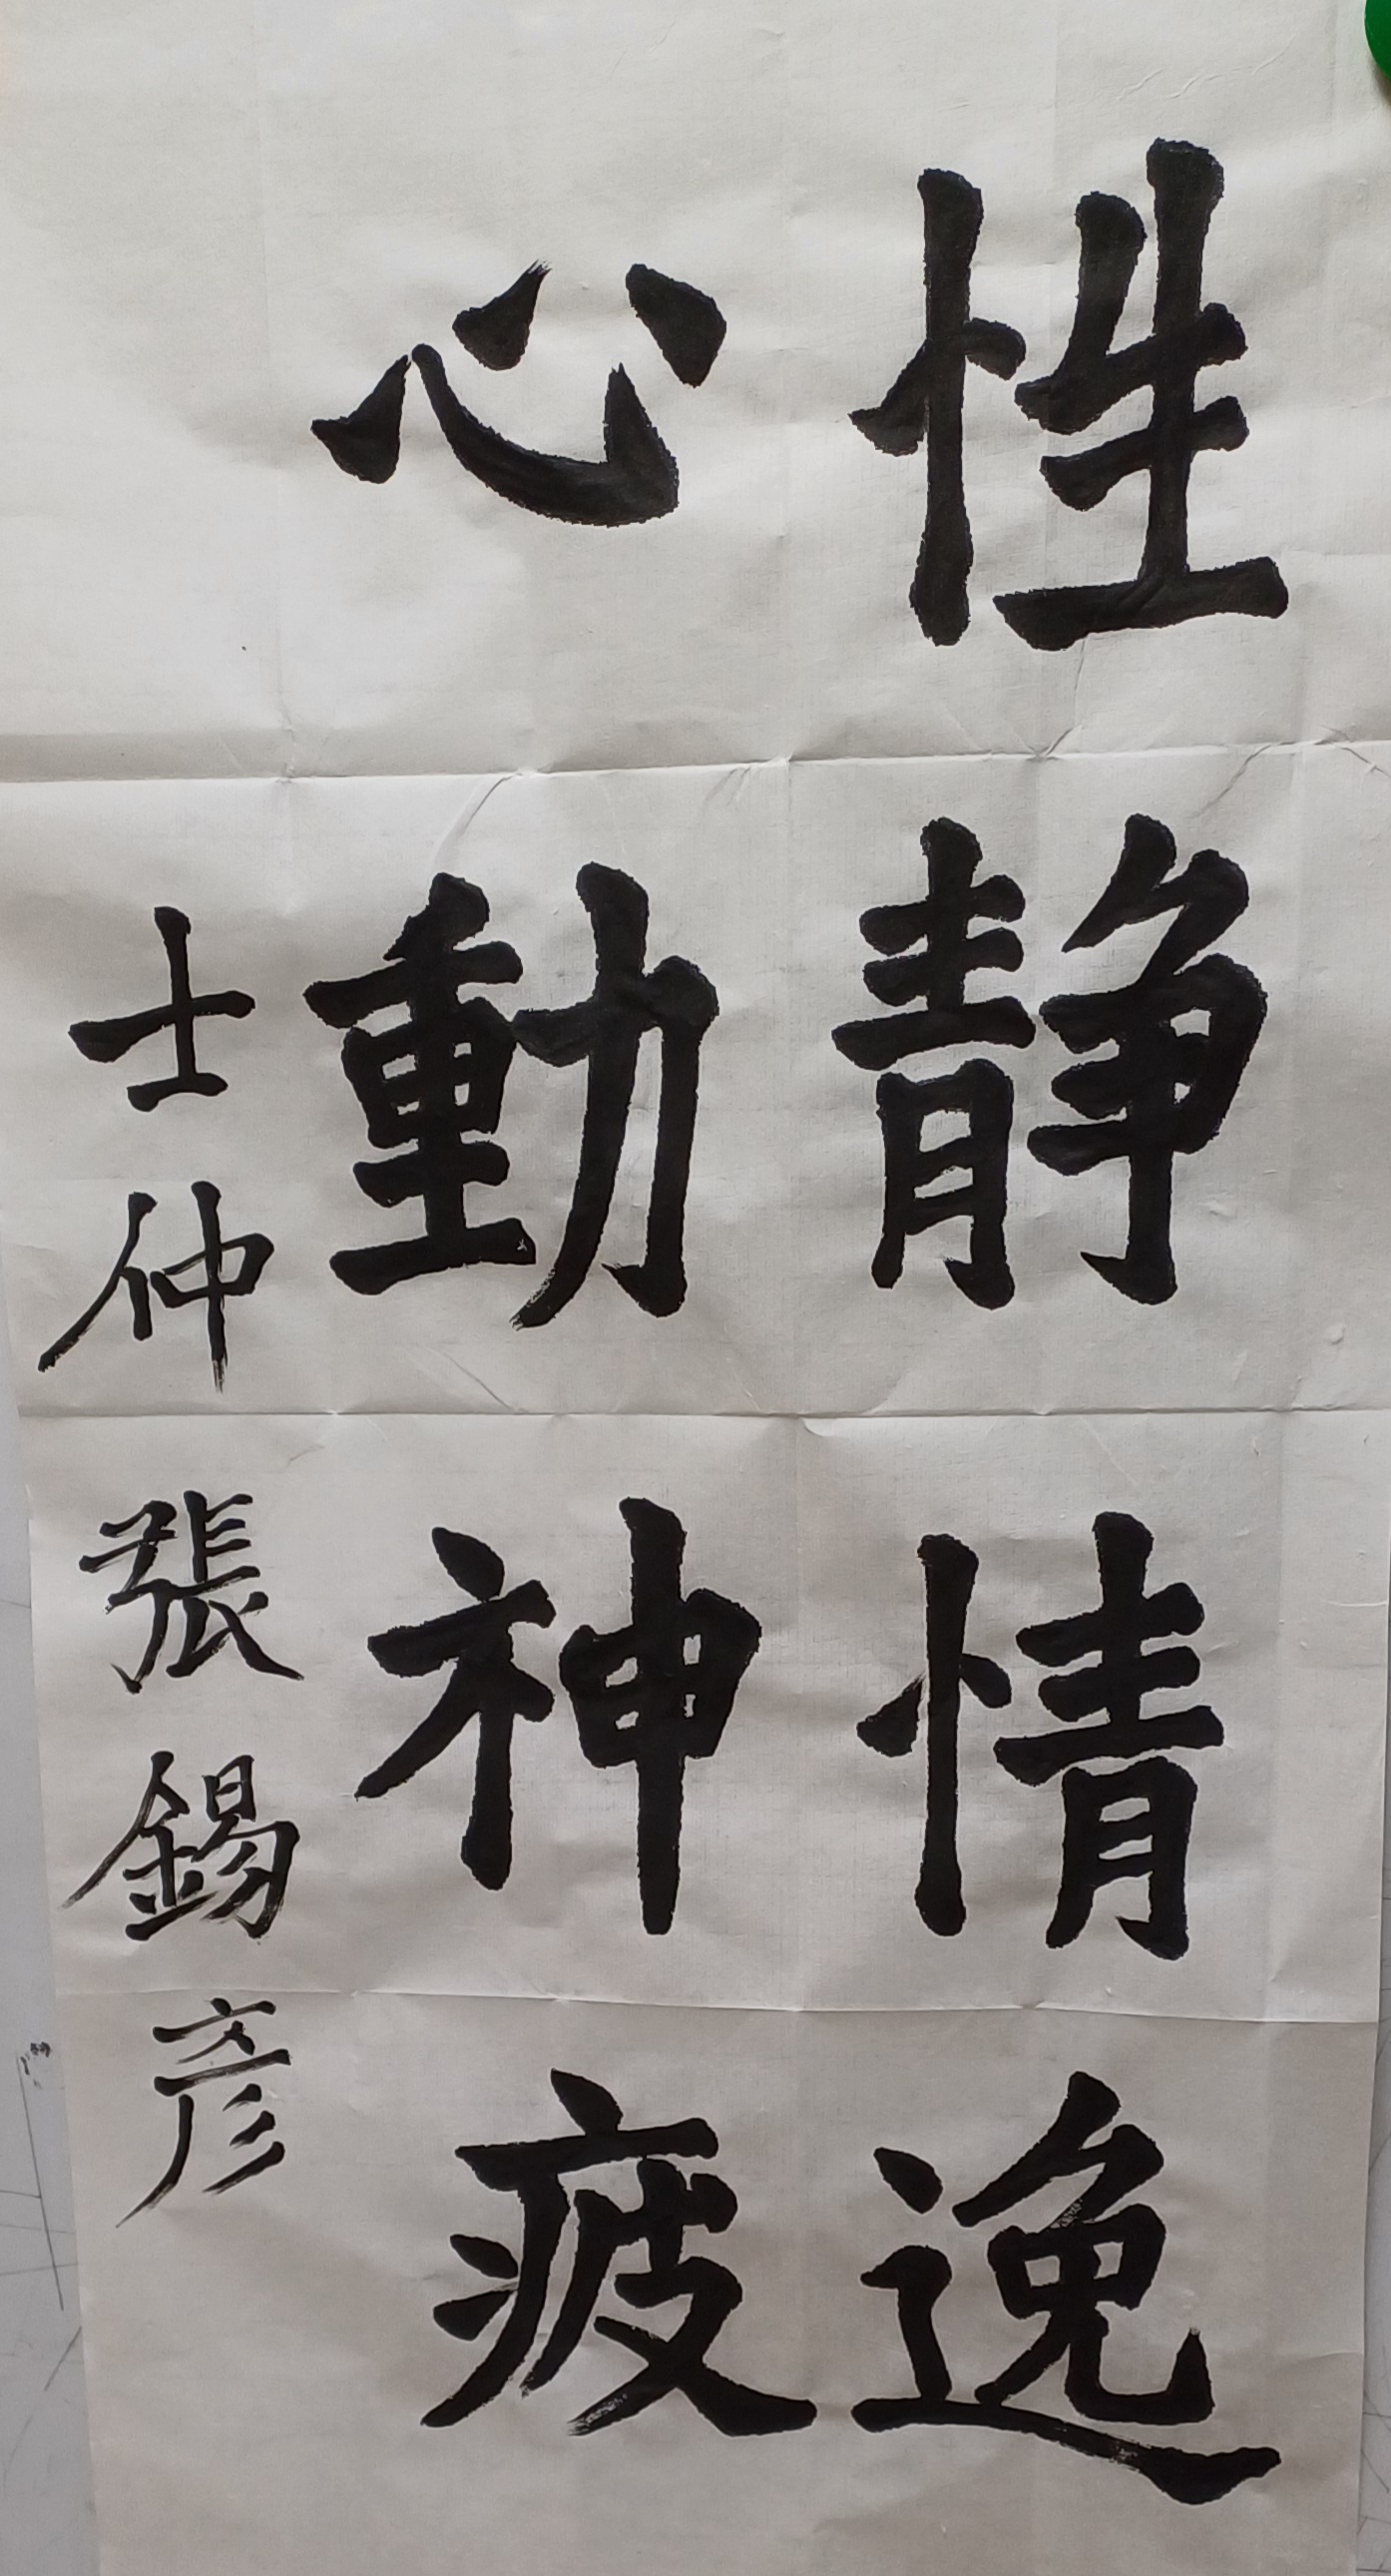 性静情逸
心動神疲
士仲張錫彦